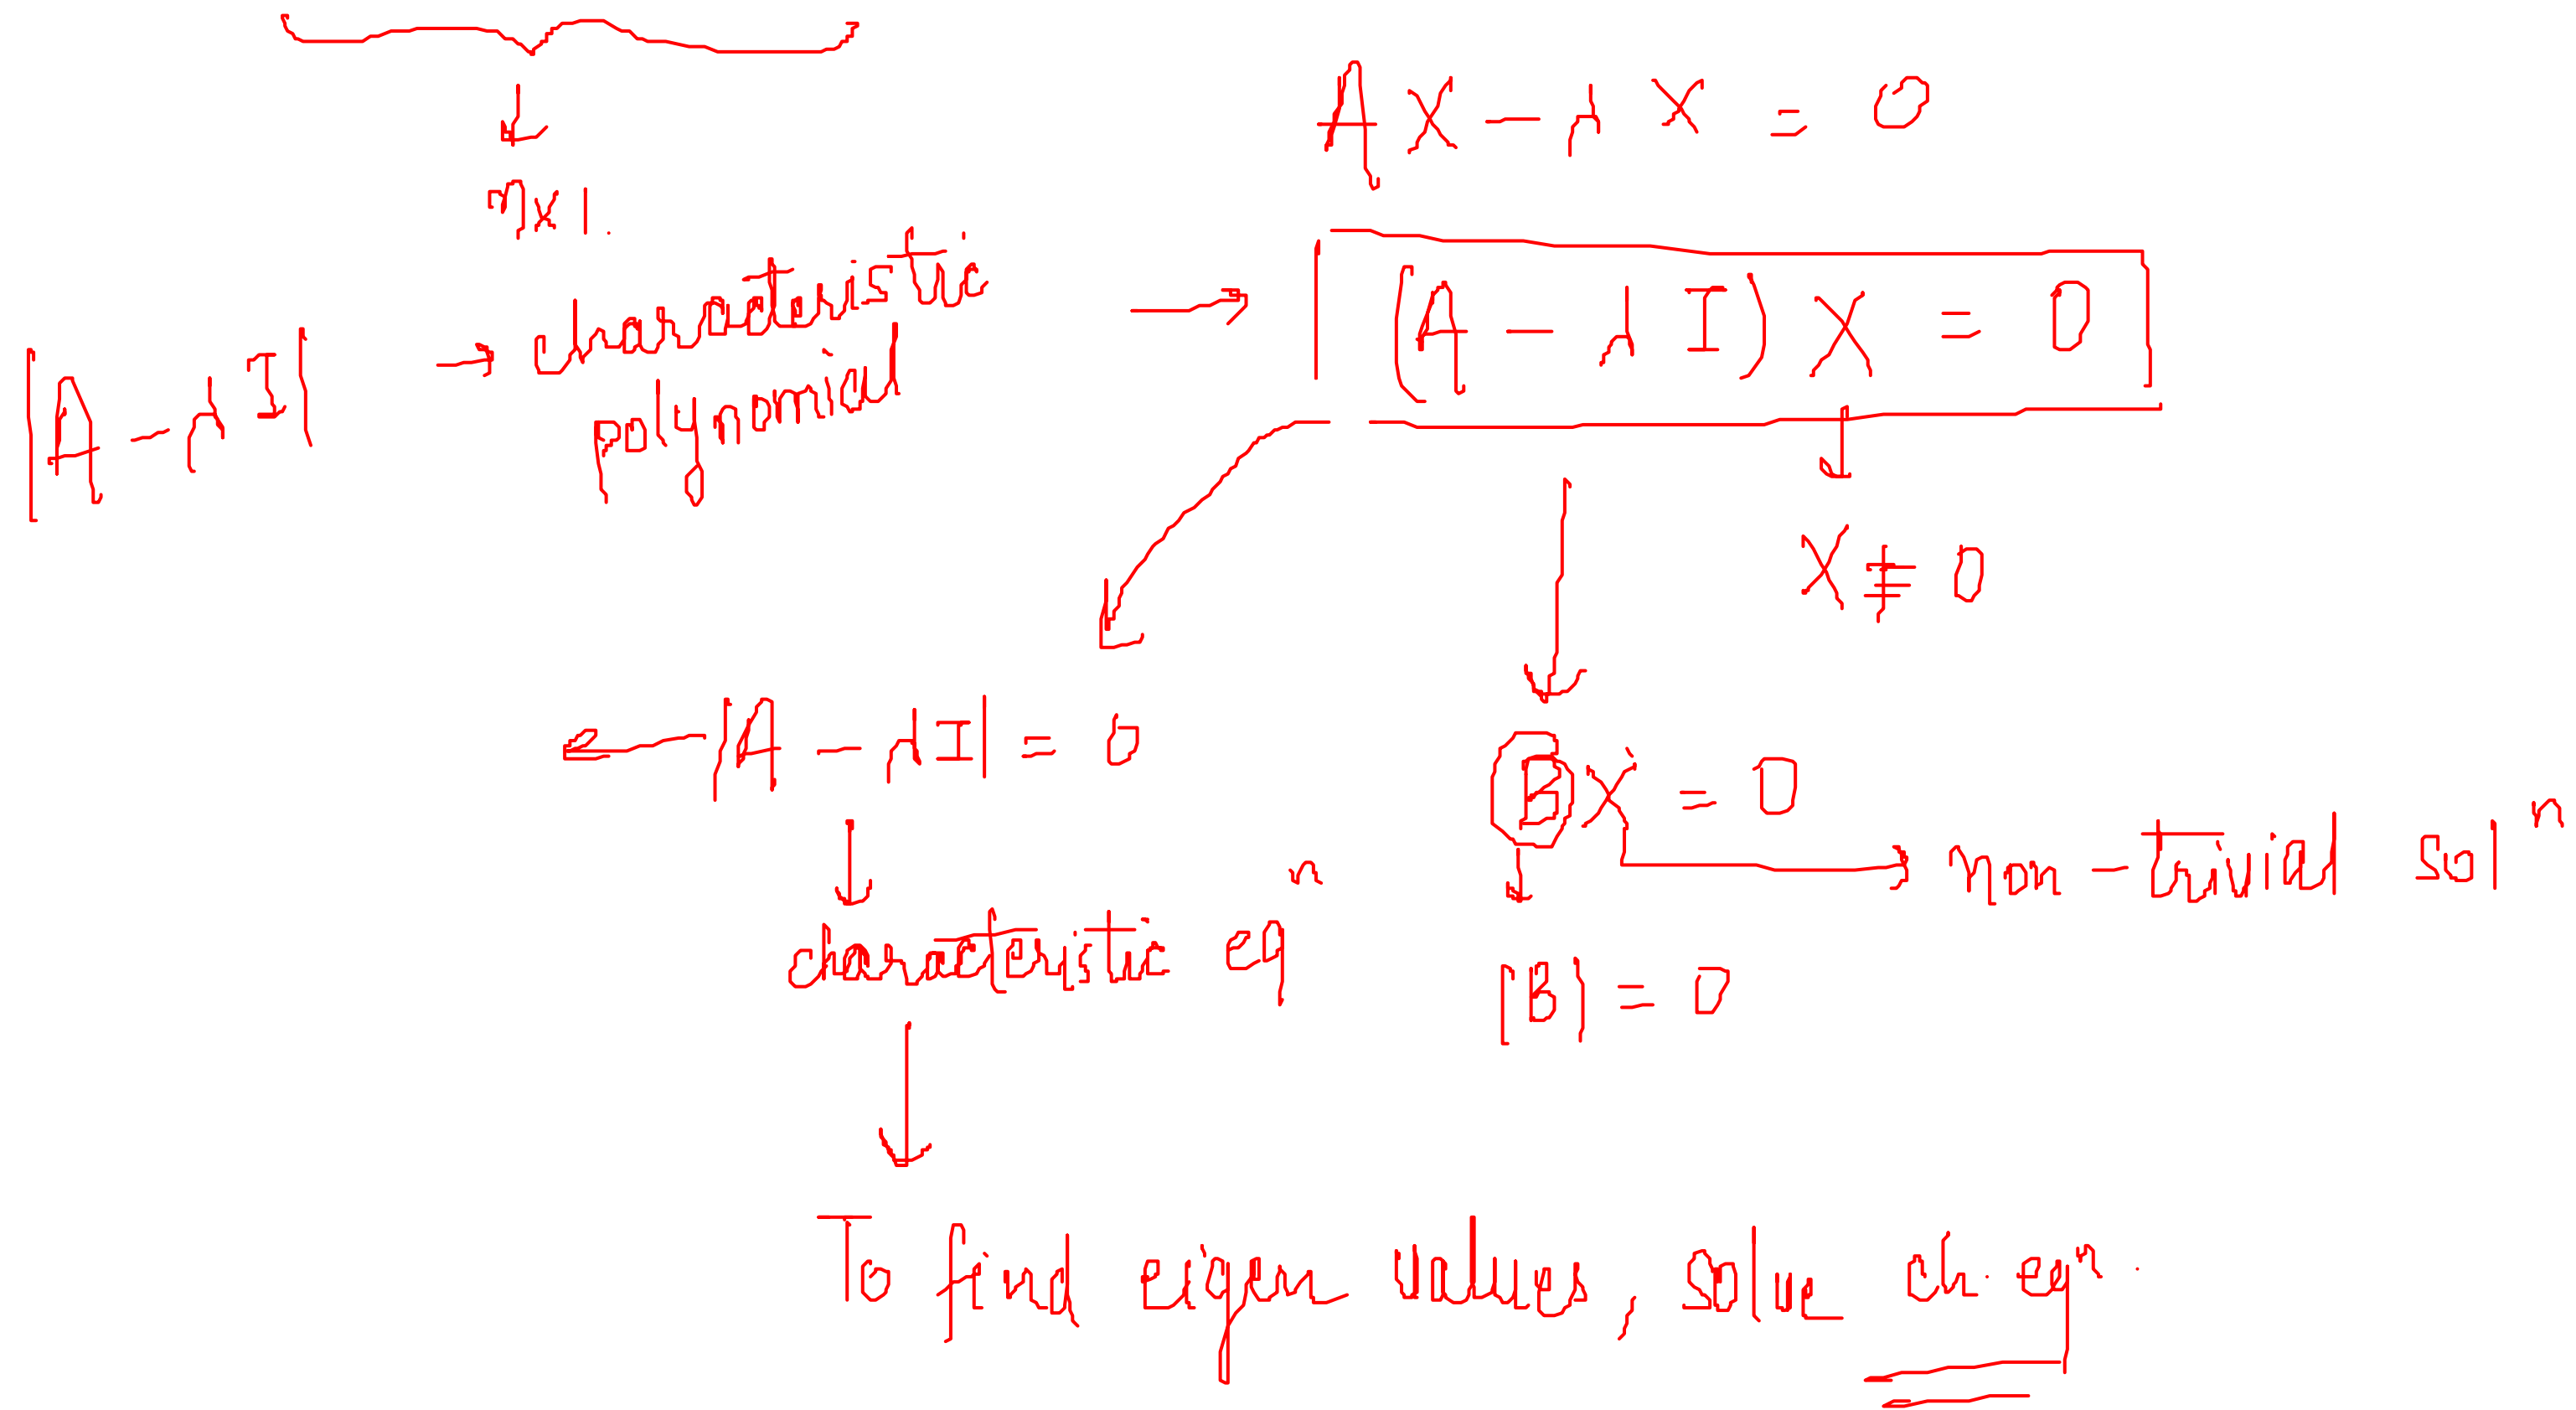 n×1.
AX - λX = 0
|A - λI| → characteristic polynomial → (A - λI)X = 0
X ≠ 0
← |A - λI| = 0
BX = 0
→ non-trivial solⁿ
characteristic eqⁿ
|B| = 0
To find eigen values, solve ch. eqⁿ.